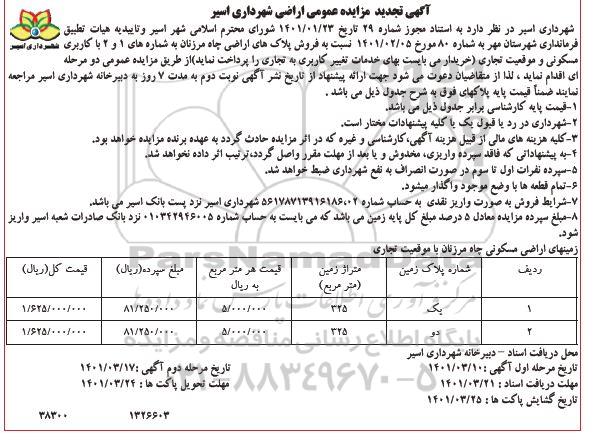 آگهی تجدید مزایده عمومی اراضی شهرداری اسیر
شهرداری اسیر
شهرداری اسیر در نظر دارد به استناد مجوز شماره ۲۹ تاریخ ۱۴۰۱/۰۱/۲۳ شورای محترم اسلامی شهر اسیر وتاییدیه هیات تطبیق
فرمانداری شهرستان مهر به شماره ۸۰ مورخ ۱۴۰۱/۰۲/۰۵ نسبت به فروش پلاک های اراضی چاه مرزنان به شماره های ۱ و ۲ با کاربری
مسکونی و موقعیت تجاری (خریدار می بایست بهای خدمات تغییر کاربری به تجاری را پرداخت نماید)از طریق مزایده عمومی دو مرحله
ای اقدام نماید ، لذا از متقاضیان دعوت می شود جهت ارائه پیشنهاد از تاریخ نشر آگهی نوبت دوم به مدت ۷ روز به دبیرخانه شهرداری اسیر مراجعه
نمایند ضمناً قیمت پایه پلاکهای فوق به شرح جدول ذیل می باشد .
۱-قیمت پایه کارشناسی برابر جدول ذیل می باشد.
۲-شهرداری در رد یا قبول یک یا کلیه پیشنهادات مختار است.
۳-کلیه هزینه های مالی از قبیل هزینه آگهی،کارشناسی و غیره که در اثر مزایده حادث گردد به عهده برنده مزایده خواهد بود.
۴-به پیشنهاداتی که فاقد سپرده واریزی، مخدوش و یا بعد از مهلت مقرر واصل گردد،ترتیب اثر داده نخواهد شد.
۵-سپرده نفرات اول تا سوم در صورت انصراف به نفع شهرداری ضبط خواهد شد.
۶-تمام قطعه ها با وضع موجود واگذار میشود.
۷-شرایط فروش به صورت واریز نقدی به حساب شماره ۵۶۱۷۸۷۱۳۹۱۶۱۸۶،۰۲ شهرداری اسیر نزد پست بانک اسیر می باشد.
۸-مبلغ سپرده مزایده معادل ۵ درصد مبلغ کل پایه زمین می باشد که می بایست به حساب شماره ۰۱۰۳۴۲۹۴۶۰۰۵ نزد بانک صادرات شعبه اسیر واریز
شود.
زمینهای اراضی مسکونی چاه مرزنان با موقعیت تجاری
ردیف شماره پلاک زمین متراژ زمین (متر مربع) قیمت هر متر مربع به ریال مبلغ سپرده(ریال) قیمت کل(ریال)
۱ یک ۳۲۵ ۵/۰۰۰/۰۰۰ ۸۱/۲۵۰/۰۰۰ ۱/۶۲۵/۰۰۰/۰۰۰
۲ دو ۳۲۵ ۵/۰۰۰/۰۰۰ ۸۱/۲۵۰/۰۰۰ ۱/۶۲۵/۰۰۰/۰۰۰
محل دریافت اسناد – دبیرخانه شهرداری اسیر
تاریخ مرحله اول آگهی :۱۴۰۱/۰۳/۱۰ تاریخ مرحله دوم آگهی :۱۴۰۱/۰۳/۱۷
مهلت دریافت اسناد : ۱۴۰۱/۰۳/۲۱ مهلت تحویل پاکت ها : ۱۴۰۱/۰۳/۲۴
تاریخ گشایش پاکت ها : ۱۴۰۱/۰۳/۲۵
۱۳۲۶۶۰۳ ۳۸۳۰۰
ParsNamadData
پایگاه اطلاع رسانی مناقصه و مزایده
۰۲۱-۸۸۳۴۹۶۷۰-۵